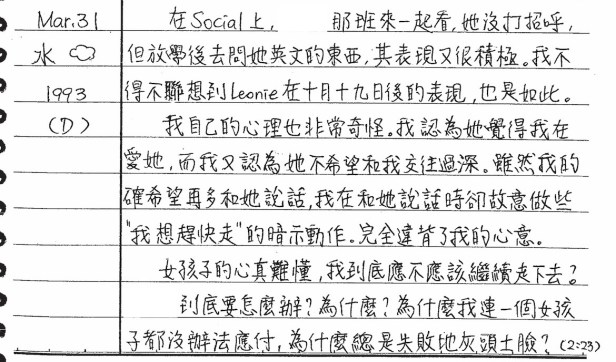 Mar.31 在Social上, 那班來一起看,她沒打招呼,
水 但放學後去問她英文的東西,其表現又很積極。我不
1993 得不聯想到Leonie在十月十九日後的表現,也是如此。
(D) 我自己的心理也非常奇怪。我認為她覺得我在
愛她,而我又認為她不希望和我交往過深。雖然我的
確希望再多和她說話,我在和她說話時卻故意做些
"我想趕快走"的暗示動作。完全違背了我的心意。
女孩子的心真難懂,我到底應不應該繼續走下去?
到底要怎麼辦?為什麼?為什麼我連一個女孩
子都沒辦法應付,為什麼總是失敗地灰頭土臉?(2:23)